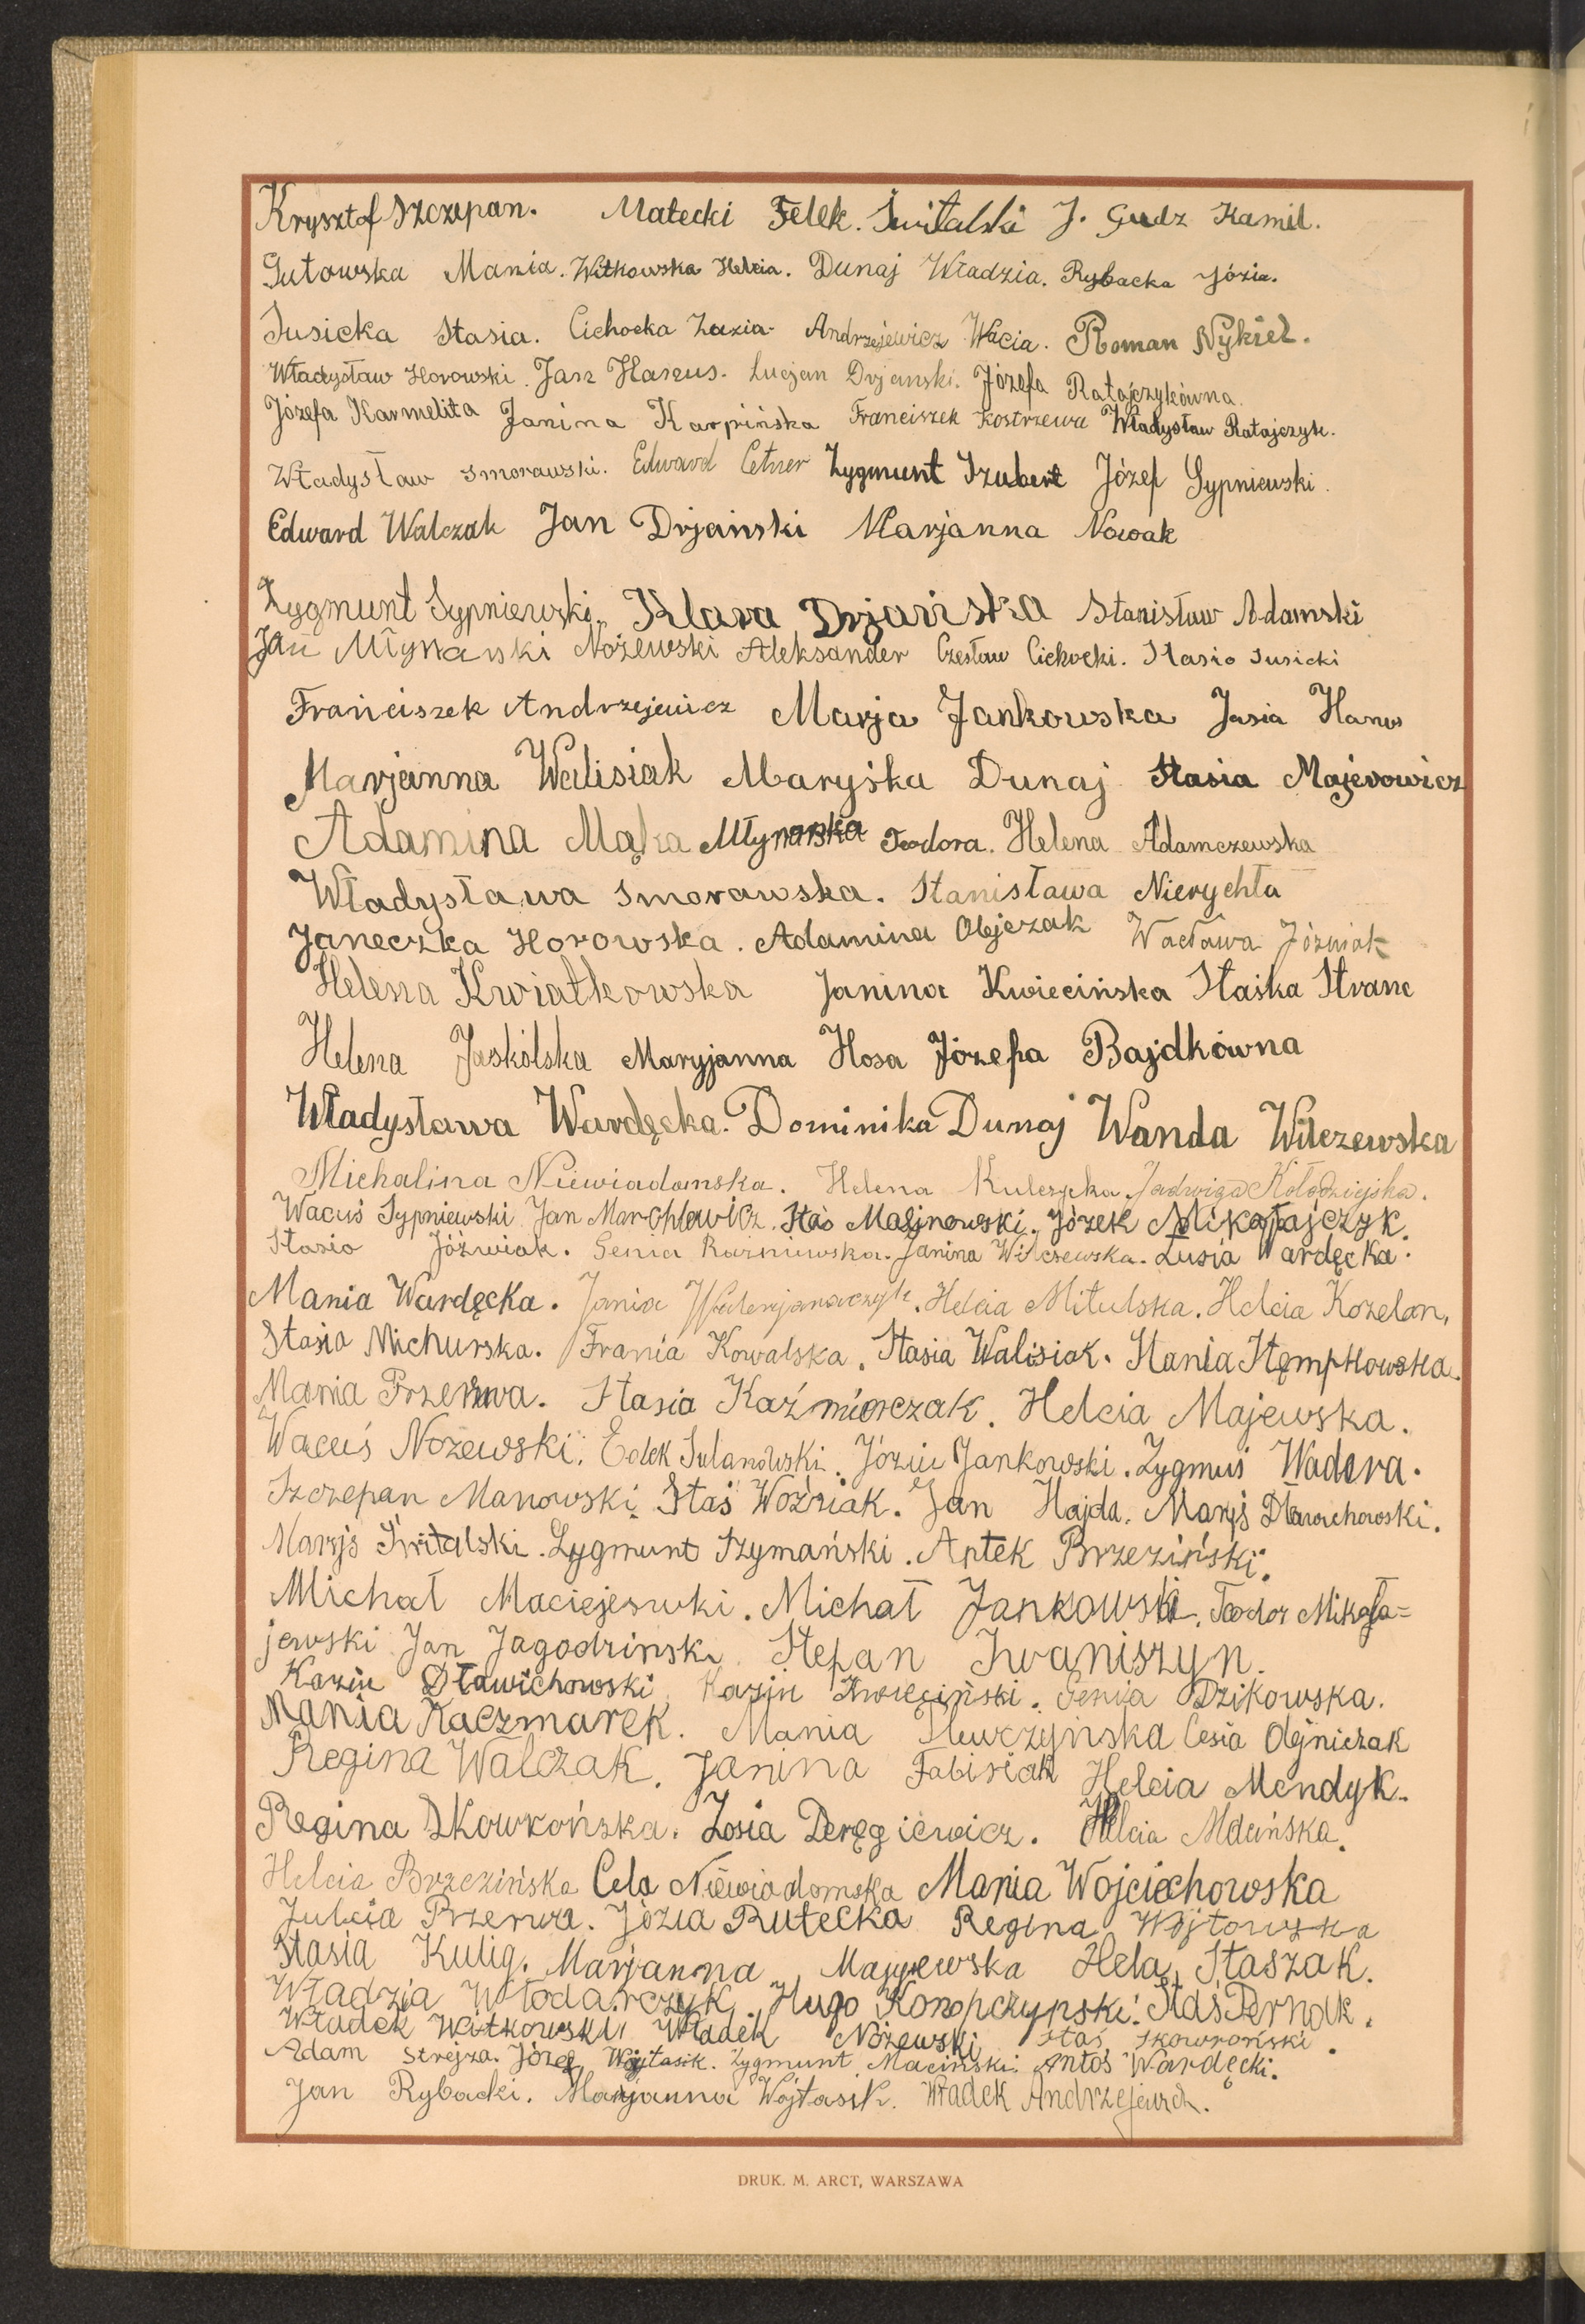 Krysztof Szczepan. Małecki Felek. Świtalski J. Gudz Kamil.
Gutowska Mania. Witkowska Helcia. Dunaj Władzia. Rybacka Józia.
Susicka Stasia. Cichocka Zuzia. Andrzejewicz Wacia. Roman Nykiel.
Władysław Horowski. Jan Hanus. Lucjan Drjański. Józefa Ratajczykówna.
Józefa Karmelita Janina Karpińska Franciszek Kostrzewa Władysław Ratajczyk.
Władysław Smorawski. Edward Cetner Zygmunt Szubert Józef Sypniewski.
Edward Walczak Jan Drjański Marjanna Nowak
Zygmunt Sypniewski. Klara Drjańska Stanisław Adamski
Jan Młynarski Nożewski Aleksander Czesław Cichocki. Stasio Susicki
Franciszek Andrzejewicz Marja Jankowska Jasia Hanus
Marjanna Walisiak Maryśka Dunaj Stasia Majerowicz
Adamina Mąka Młynarska Teodora. Helena Adamczewska
Władysława Smorawska. Stanisława Nierychła
Janeczka Horowska. Adamina Olejczak Wacława Jóźwiak
Helena Kwiatkowska Janina Kwiecińska Staśka Stranc
Helena Jaskólska Maryjanna Hosa Józefa Bajdkówna
Władysława Wardęcka. Dominika Dunaj Wanda Wilczewska
Michalina Niewiadomska. Helena Kulczycka. Jadwiga Kołodziejska.
Wacuś Sypniewski Jan Marchlewicz. Staś Malinowski. Józek Mikołajczyk.
Stasio Jóźwiak. Genia Rozniewska. Janina Wilczewska. Lusia Wardęcka.
Mania Wardęcka. Jania Walerjanaczyk. Helcia Mitulska. Helcia Kozelan.
Stasia Michurska. Frania Kowalska. Stasia Walisiak. Stania Stempkowska.
Mania Przerwa. Stasia Kaźmierczak. Helcia Majewska.
Wacuś Nożewski. Edek Sulanowski. Józiu Jankowski. Zygmuś Wadera.
Szczepan Manowski. Staś Woźniak. Jan Hajda. Maryś Dławichowski.
Maryś Świtalski. Zygmunt Szymański. Antek Brzeziński.
Michał Maciejewski. Michał Jankowski. Teodor Mikoła=
jewski Jan Jagodziński. Stepan Iwaniszyn.
Kaziu Dławichowski Kaziu Kwieciński. Genia Dzikowska.
Mania Kaczmarek. Mania Slewczyńska Cesia Olejniczak
Regina Walczak. Janina Fabisiak Helcia Mendyk.
Regina Skowrońska. Zosia Deręgiewicz. Helcia Mdeińska.
Helcia Brzezińska Cela Niewiadomska Mania Wojciechowska
Julcia Przerwa. Józia Rutecka Regina Wójtowska
Stasia Kulig. Marjanna Majewska Hela Staszak.
Władzia Włodarczyk. Hugo Konopczyński. Staś Pernak.
Władek Witkowski Władek Nożewski Staś Skowroński.
Adam Strejza. Józef Wójtasik. Zygmunt Maciński. Antoś Wardęcki.
Jan Rybacki. Marjanna Wójtasik. Władek Andrzejewicz.
DRUK. M. ARCT, WARSZAWA